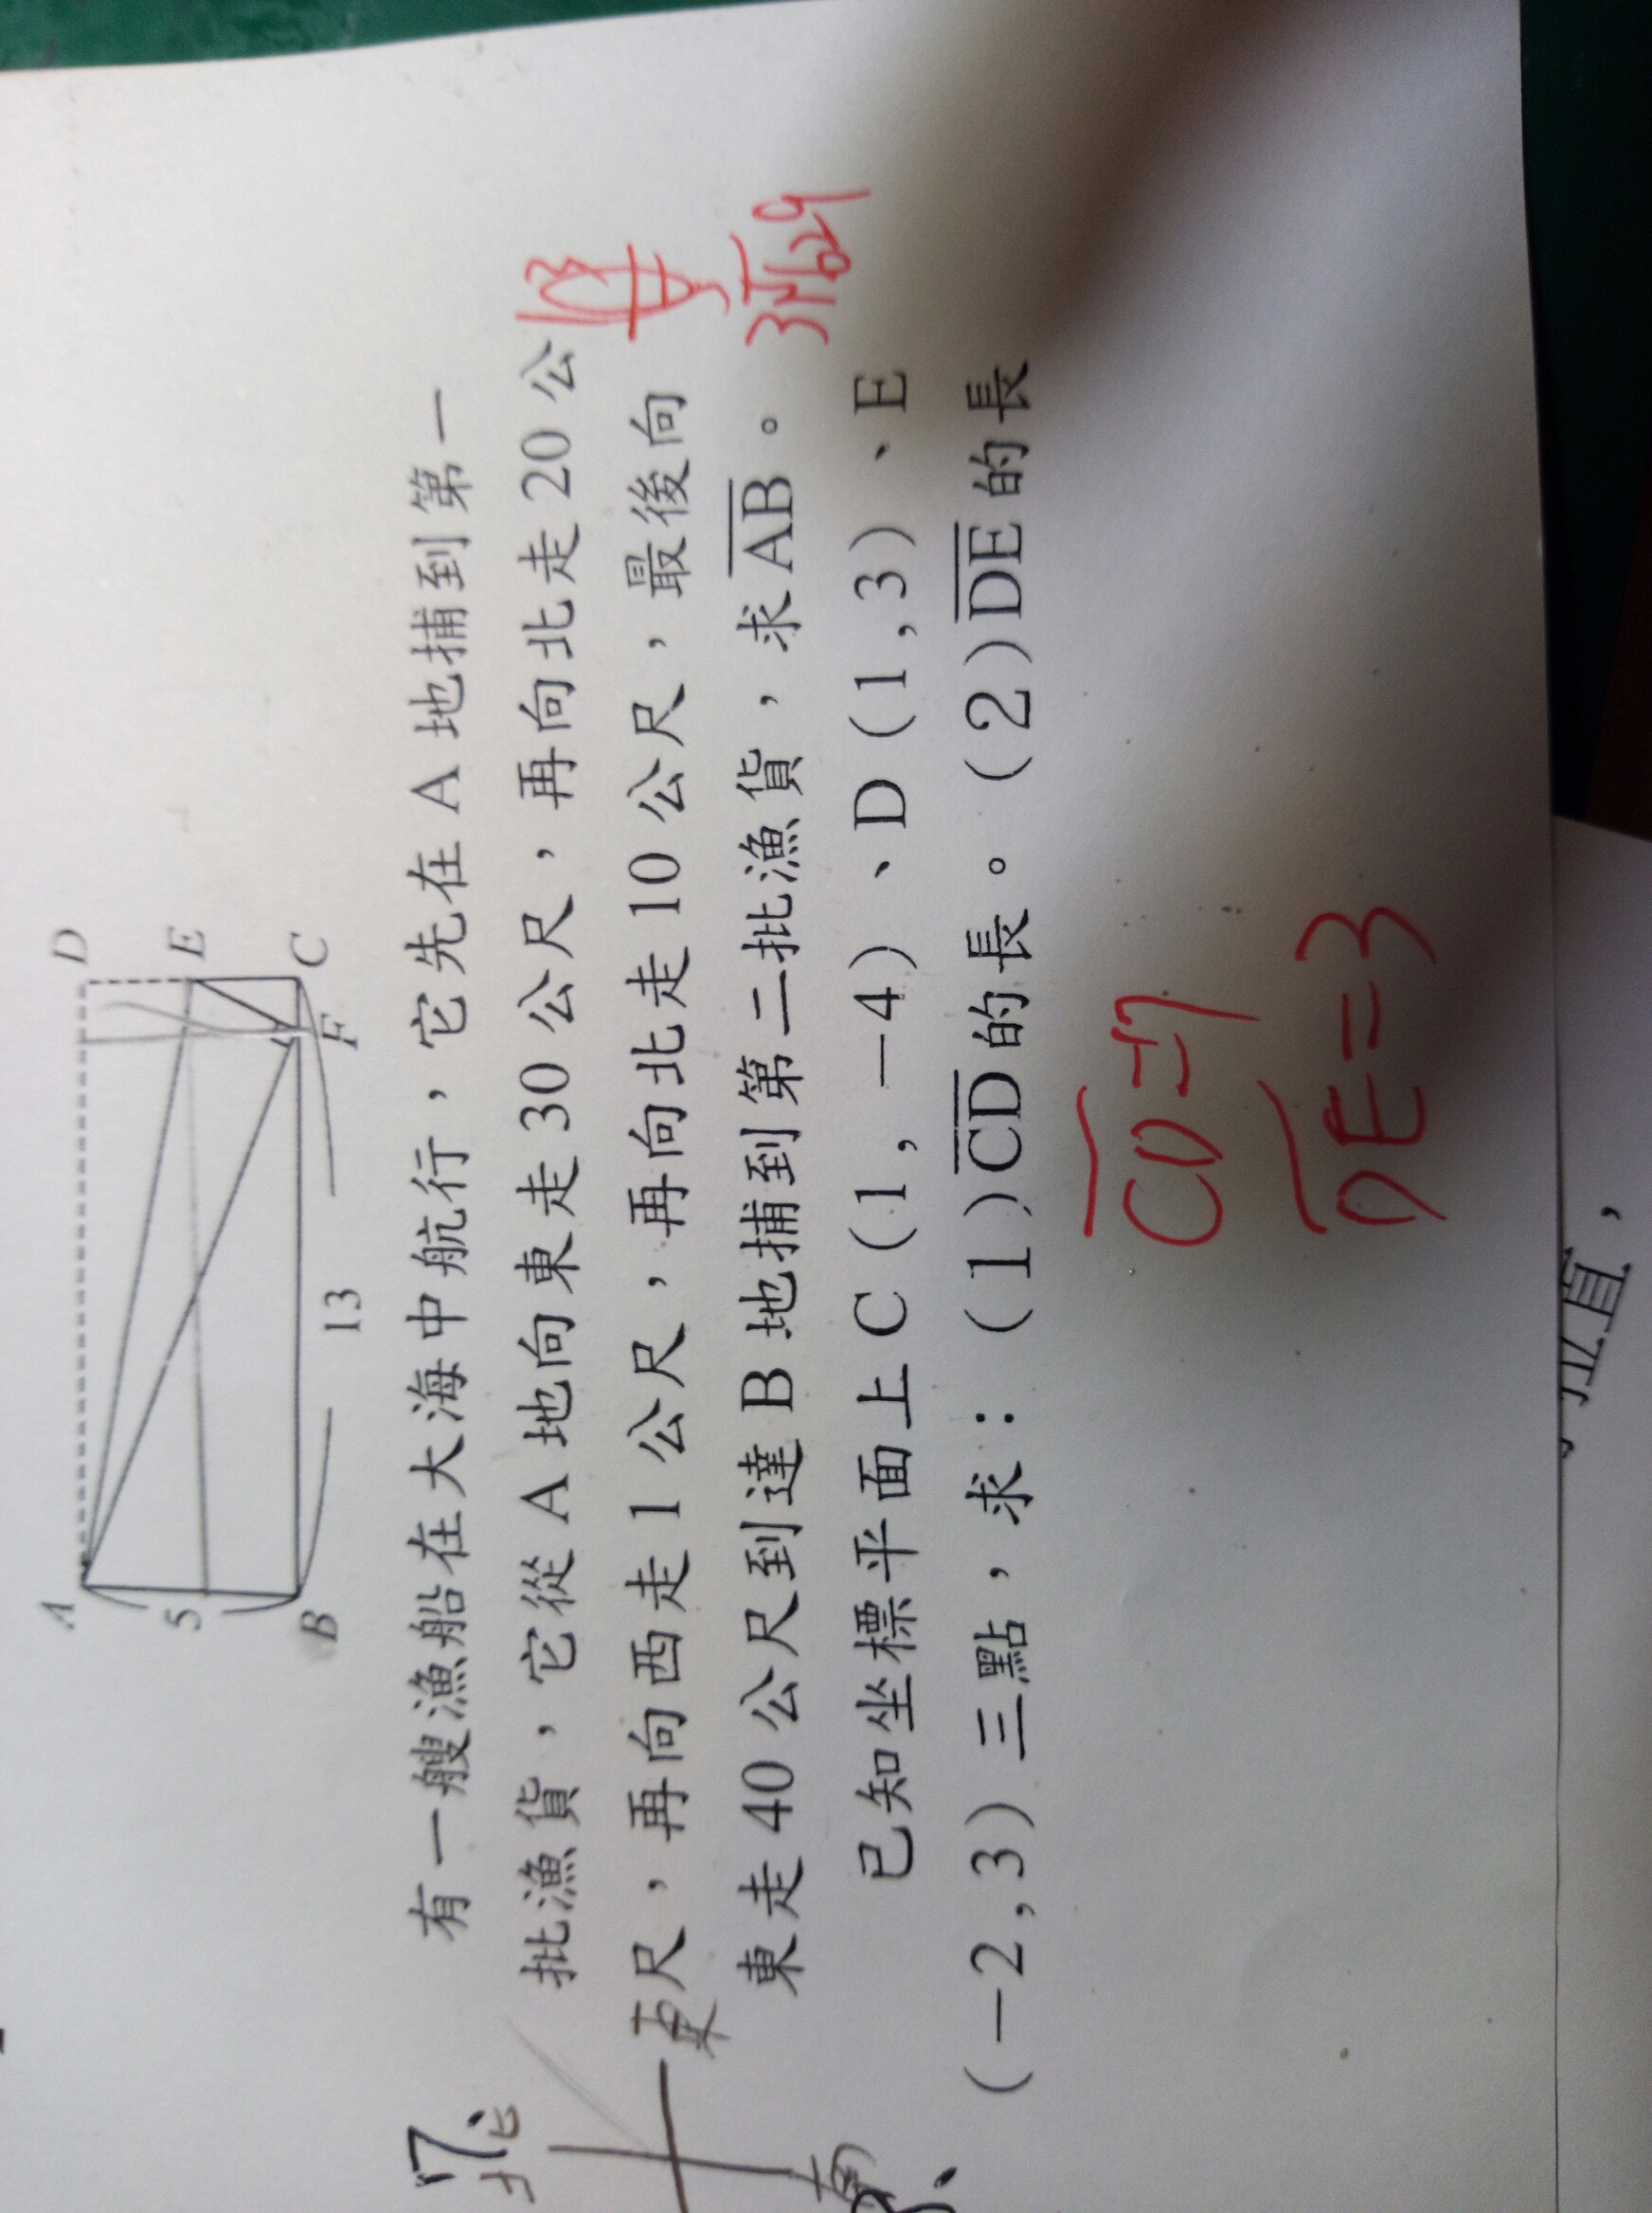 A
D
5
E
B
13
F
C
17、
有一艘漁船在大海中航行，它先在A地捕到第一
批漁貨，它從A地向東走30公尺，再向北走20公
尺，再向西走1公尺，再向北走10公尺，最後向
東走40公尺到達B地捕到第二批漁貨，求AB。
3√629
北
東
南
已知坐標平面上C（1，－4）、D（1,3）、E
（－2,3）三點，求：（1）CD的長。（2）DE的長
CD=7
DE=3